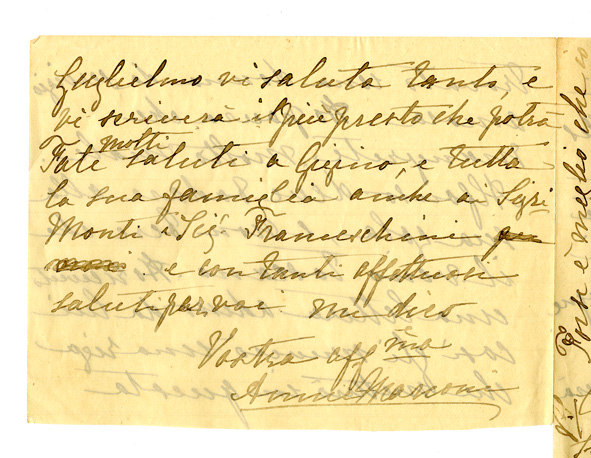 Guglielmo vi saluta tanto, e
vi scriverà il piu presto che potrà
Fate molti saluti a Gigino, e tutta
la sua famiglia anche ai Sigri
Monti e Sig Franceschini per
noi. e con tanti affettuosi
saluti per voi mi dico
Vostra aff ma
Annie Marconi
Forse è meglio che io